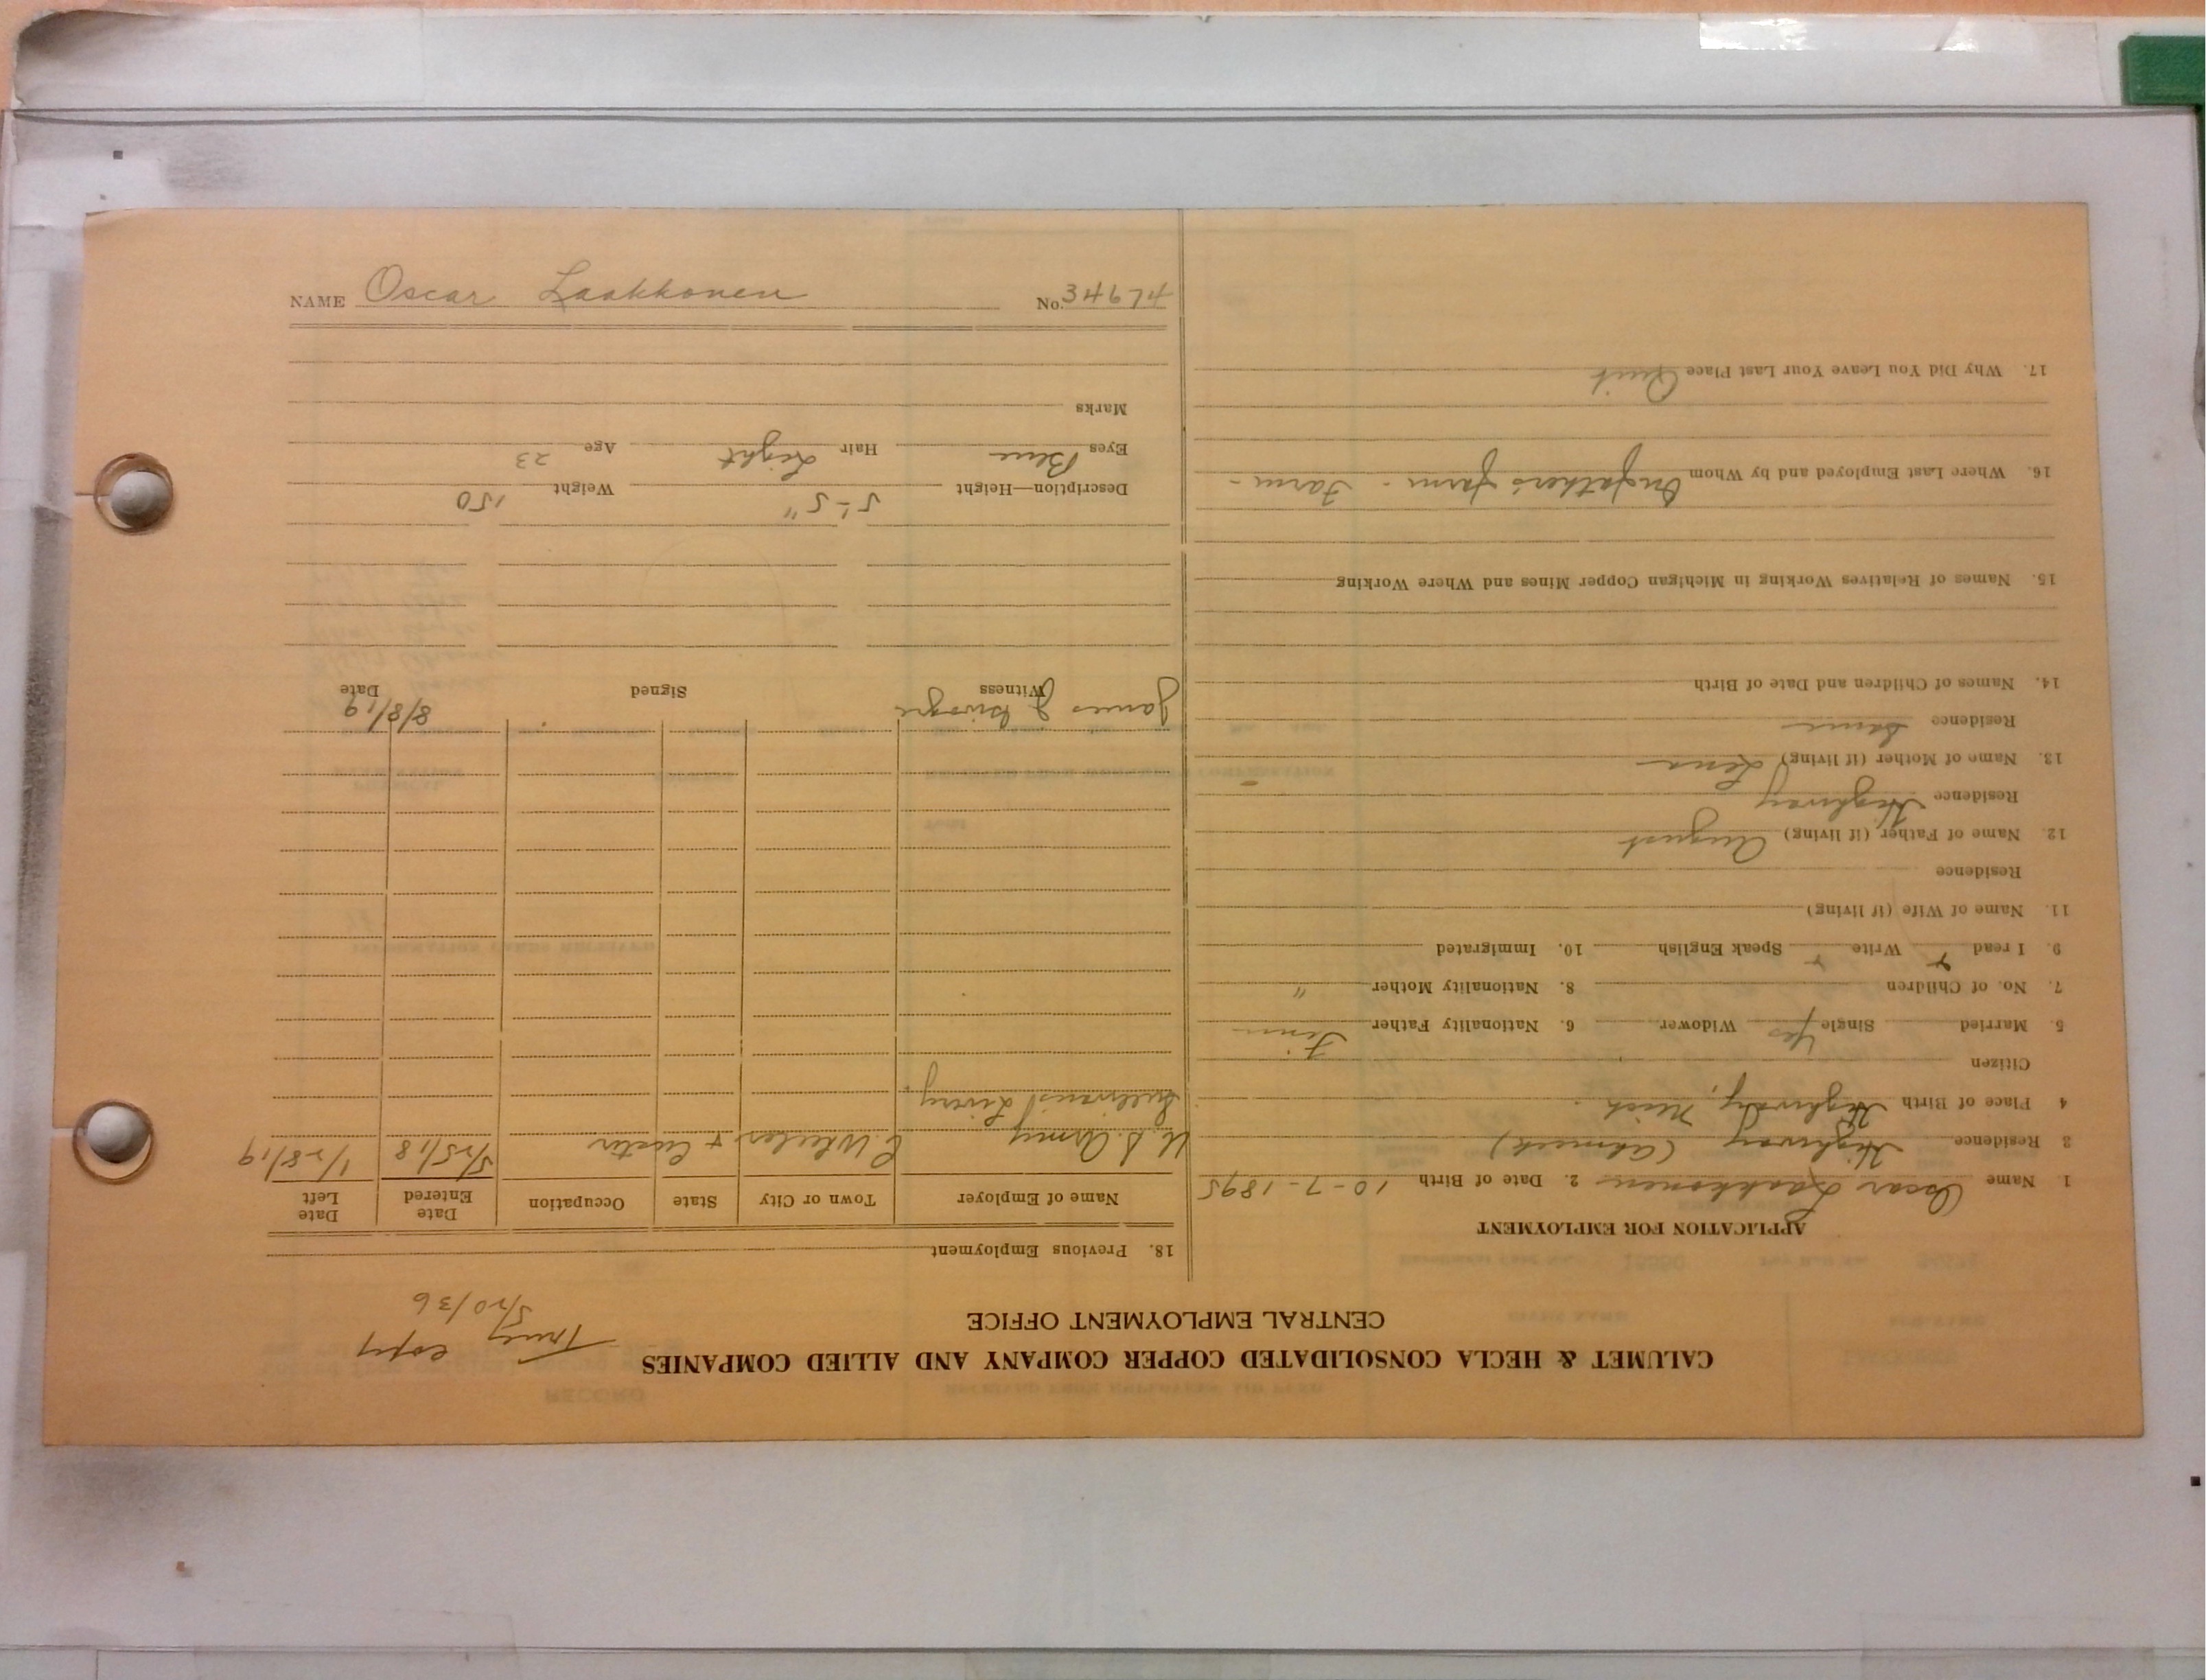 CALUMET & HECLA CONSOLIDATED COPPER COMPANY AND ALLIED COMPANIES
CENTRAL EMPLOYMENT OFFICE
True copy
5/20/36
APPLICATION FOR EMPLOYMENT
1 Name Oscar Laakkonen 2. Date of Birth 10-7-1895
3 Residence Highway (Ahmeek)
4 Place of Birth Highway, Mich.
Citizen
5. Married Single Yes Widower 6. Nationality Father Finn
7. No. of Children 8. Nationality Mother "
9. I read Y Write Y Speak English 10. Immigrated
11. Name of Wife (if living)
Residence
12. Name of Father (if living) August
Residence Highway
13. Name of Mother (if living) Lena
Residence Same
14. Names of Children and Date of Birth
15. Names of Relatives Working in Michigan Copper Mines and Where Working
16. Where Last Employed and by Whom On father's farm - Farm -
17. Why Did You Leave Your Last Place Quit
18. Previous Employment
Name of Employer Town or City State Occupation Date Entered Date Left
U.S. Army C. Wheeler & Custer 5/25/18 1/28/19
Sullivan's Livery
James J. 8/8/19
Witness Signed Date
Description—Height 5'-5" Weight 150
Eyes Blue Hair Light Age 23
Marks
NAME Oscar Laakkonen No. 34674